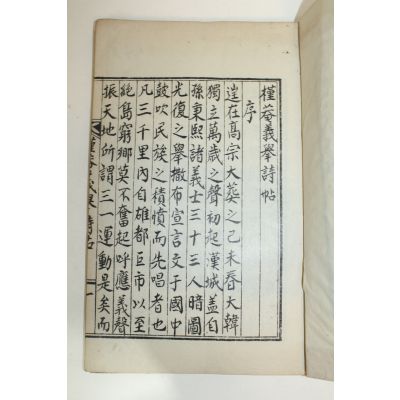 槿菴義擧詩帖
序
逞在高宗大葬之己未春大韓
獨立萬歲之聲初起漢城盖自
孫秉熙諸義士三十三人暗圖
光復之擧撒布宣言文于國中
鼓吹民族之積憤而先唱者也
凡三千里內自雄都巨市以至
絶島窮鄉莫不奮起呼應義聲
振天地所謂三一運動是矣而